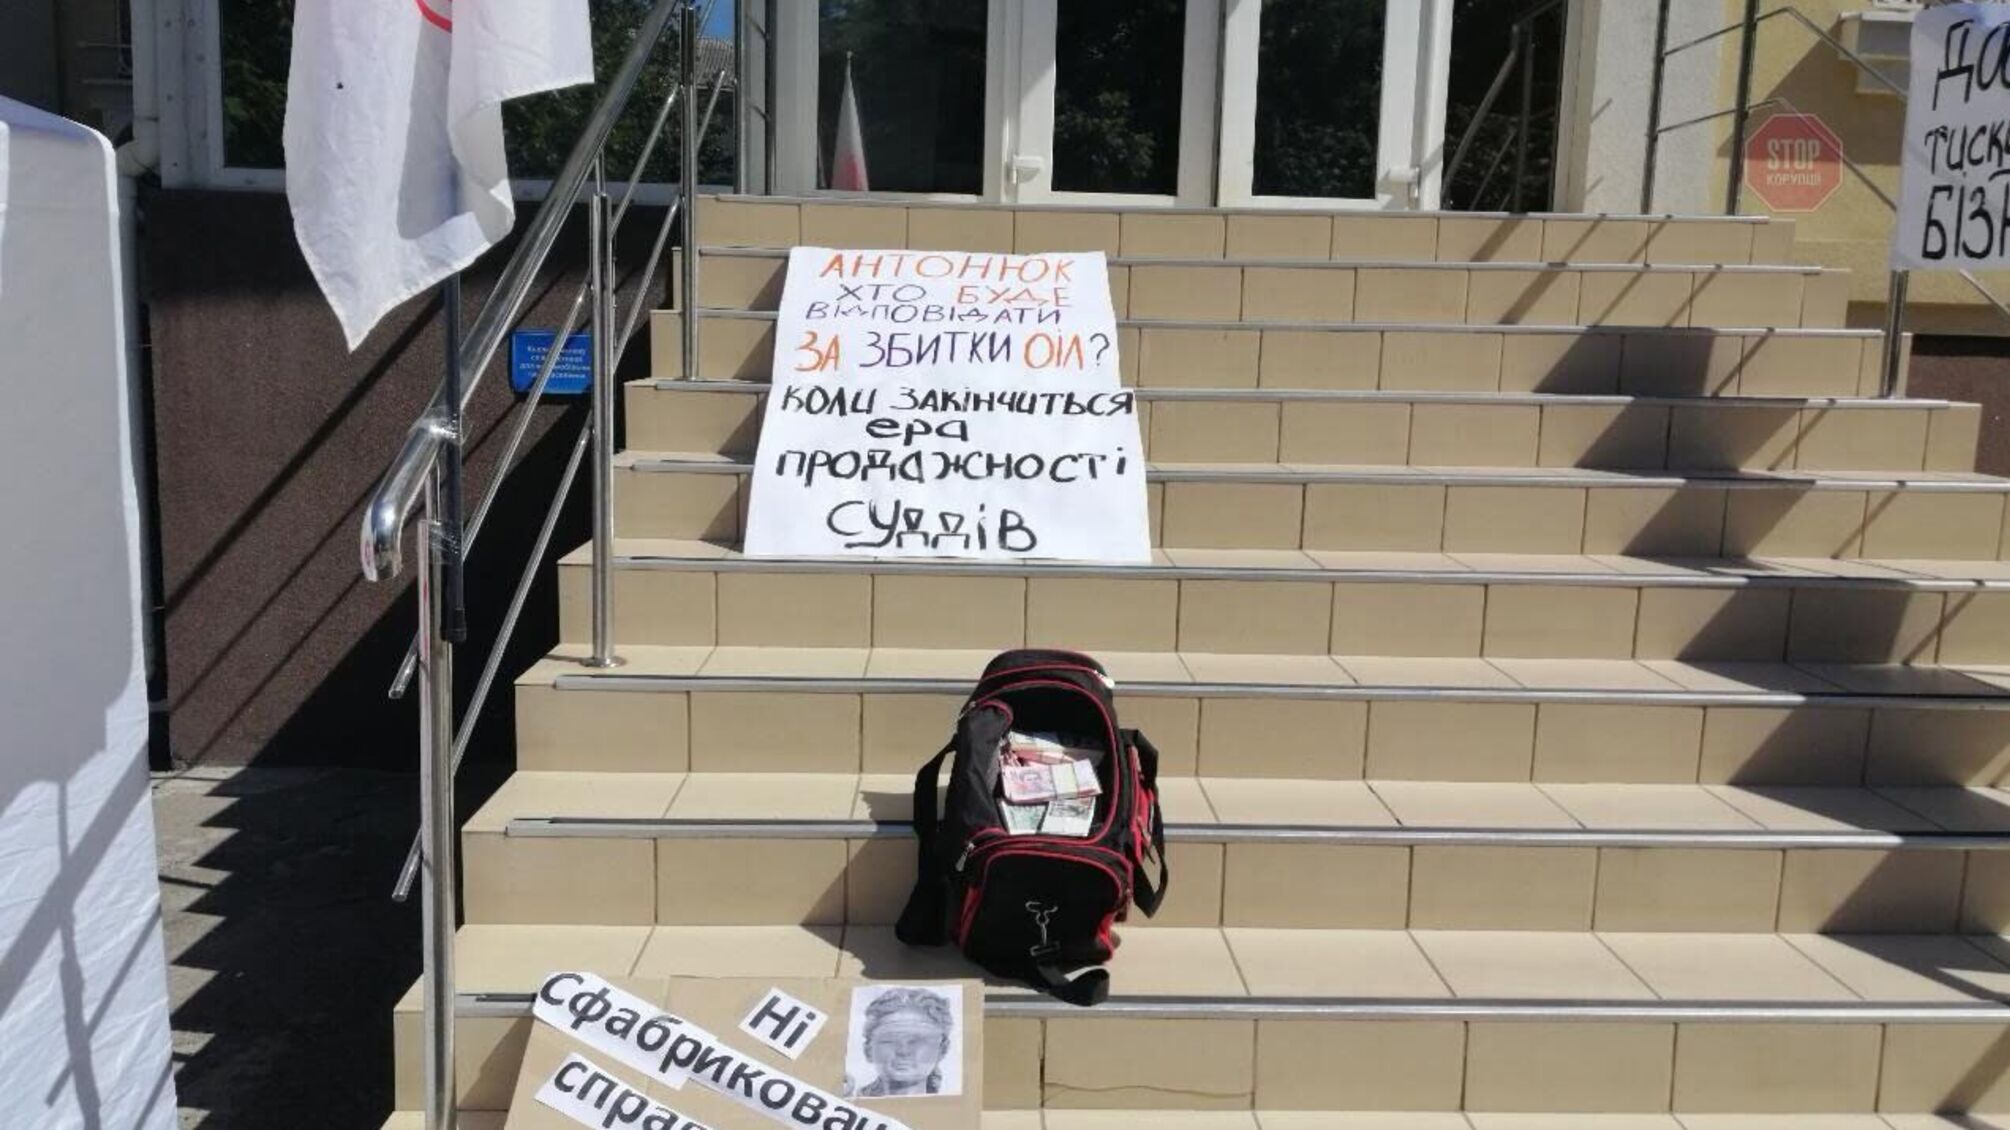 АНТОНЮК
ХТО БУДЕ
ВІДПОВІДАТИ
ЗА ЗБИТКИ ОІЛ?
КОЛИ ЗАКІНЧИТЬСЯ
ера
ПРОДАЖНОСТІ
СУДДІВ
STOP
КОРУПЦІЇ
БІЗН
Ні
Сфабрикован
справ